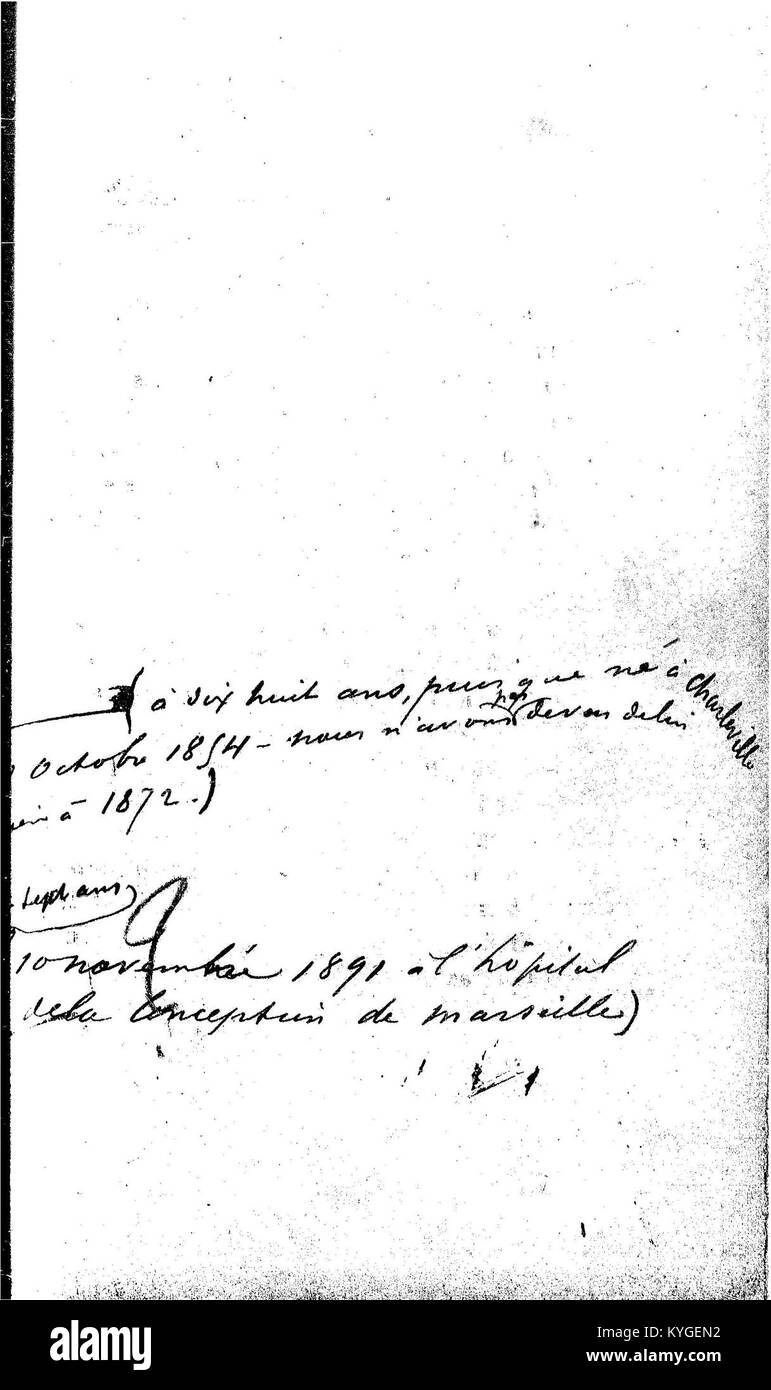 à dix huit ans, puis que né à Charleville
octobre 1854 - nous n'avons pas de vers de lui
à 1872.)
sept ans
10 novembre 1891 à l'hôpital
de la Conception de Marseille)
alamy
Image ID: KYGEN2
www.alamy.com